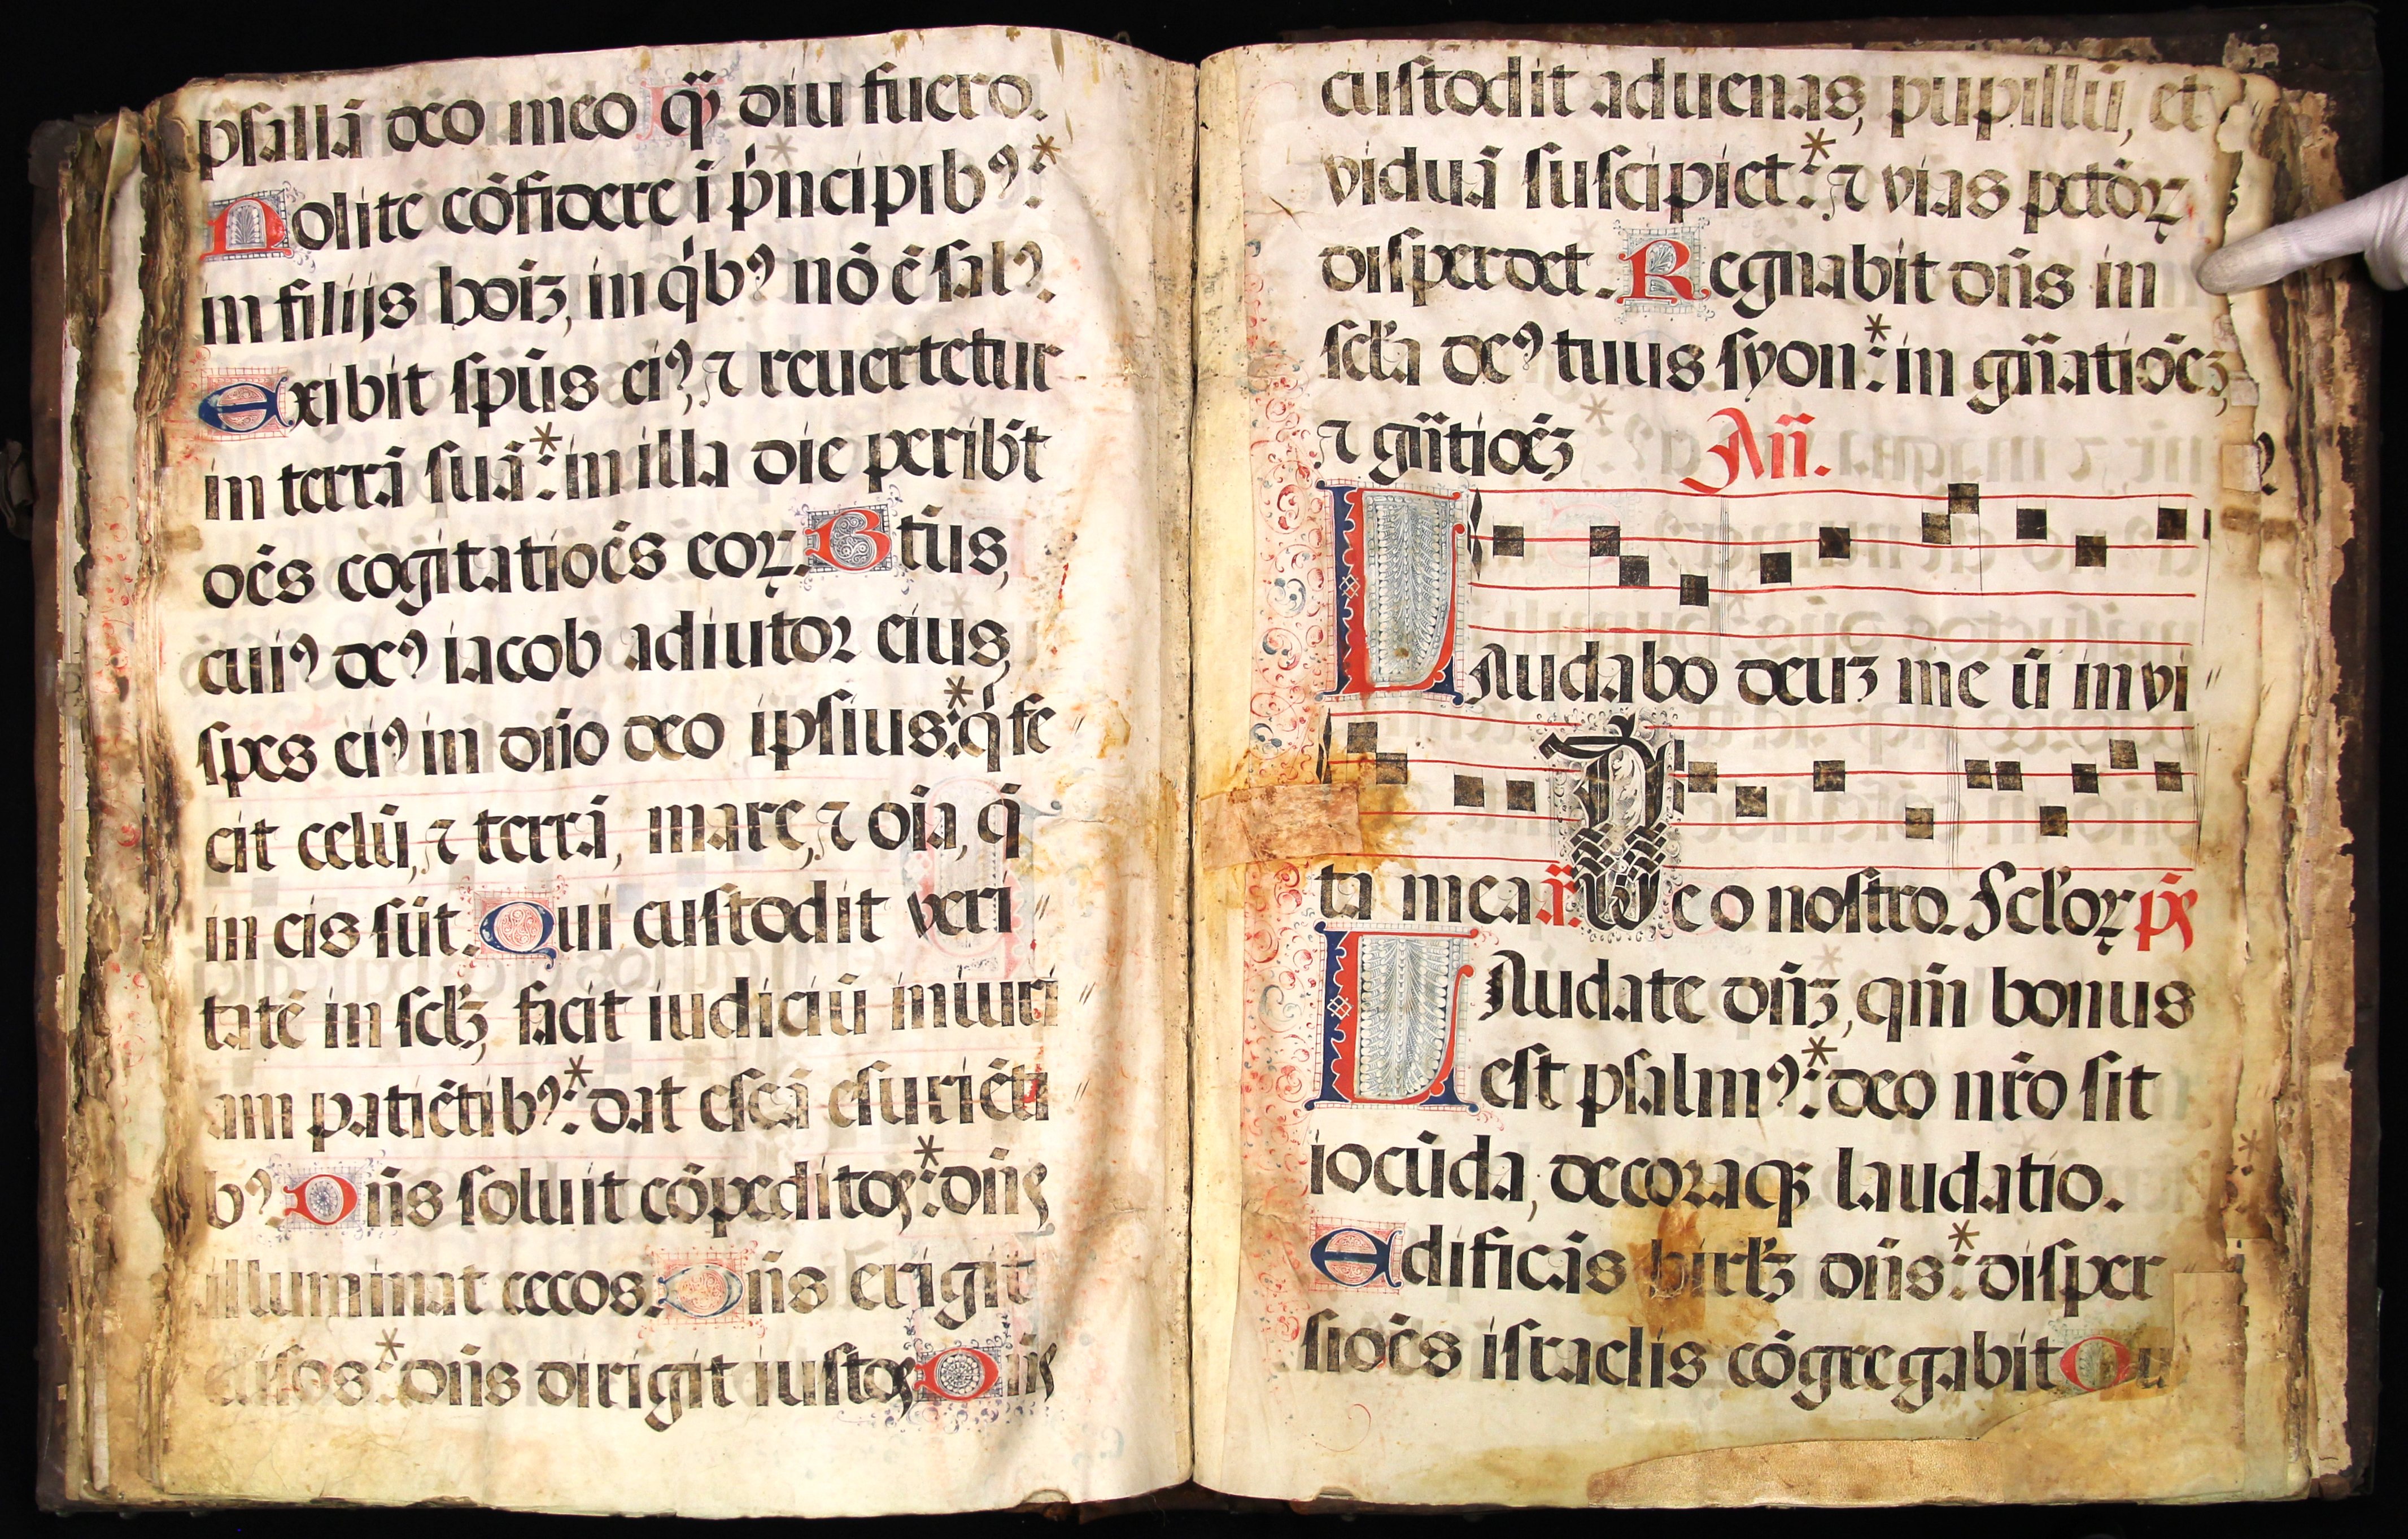 psallā deo meo qͫ diu fuero.
Nolite cōfidere ī pͥncipibꝰ:*
in filijs hoīꝫ, in qͥbꝰ nō ē salꝰ.
Exibit spūs eiꝰ, ⁊ reuertetur
in terrā suā:* in illa die peribt̄
oēs cogitatioēs coꝝ. Btūs,
cuiꝰ deꝰ iacob adiutor eius,
spes eiꝰ in dn̄o deo ipsius:* qͥ fe
cit celū, ⁊ terrā, mare, ⁊ oīa, q̄
in eis sūt. Qui custodit veri
tatē in scl̄ꝫ, facit iudiciū iniuri
am patiētibꝰ:* dat escā esuriēti
bꝰ. Dn̄s soluit cōpeditos:* dn̄s
illuminat cecos. Dn̄s erigit
elisos:* dn̄s dirigit iustos Dn̄s
custodit aduenas, pupillū, et
viduā suscipiet:* ⁊ vias pctōꝝ
disperdet. Regnabit dn̄s in
scl̄a deꝰ tuus syon:* in gn̄atioēꝫ,
⁊ gn̄tioēꝫ Añ.
LAudabo deuꝫ me ū in vi
ta mea. Deo nostro. Scl̓oꝝ ps̄
LAudate dn̄ꝫ, qm̄ bonus
est psalmꝰ:* deo nr̄o sit
iocūda, decoraqꝫ laudatio.
Edificās hirl̄ꝫ dn̄s:* disper
sioēs israelis cōgregabit Qu